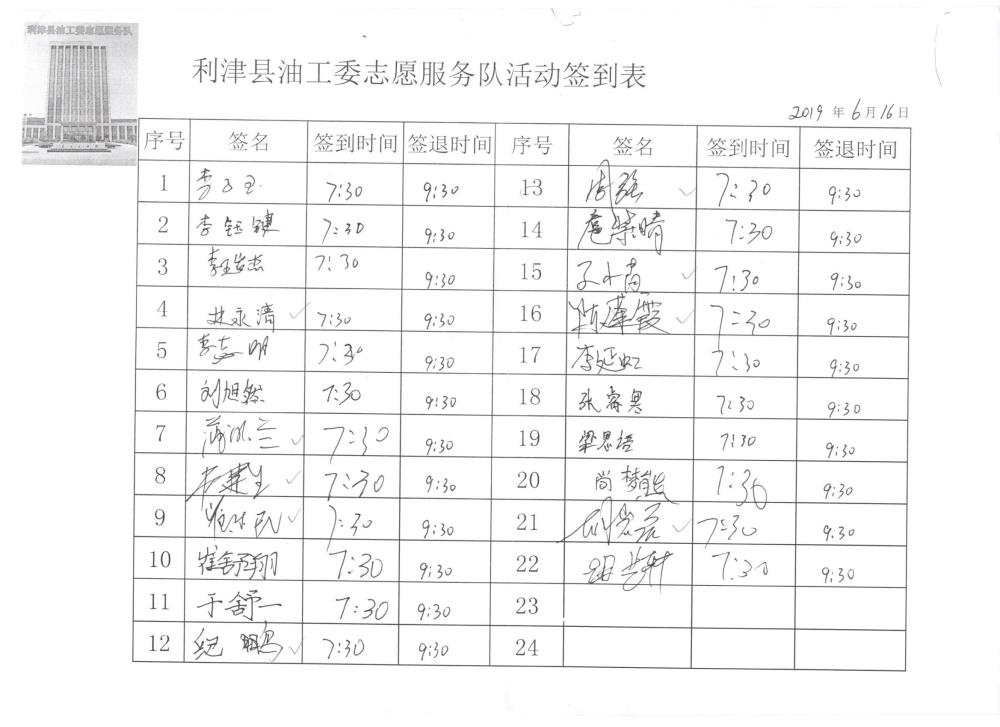 利津县油工委志愿服务队
利津县油工委志愿服务队活动签到表
2019 年 6 月 16 日
序号 签名 签到时间 签退时间 序号 签名 签到时间 签退时间
1 7:30 9:30 13 周强 7:30 9:30
2 李钰键 7:30 9:30 14 7:30 9:30
3 李玉发杰 7:30 9:30 15 7:30 9:30
4 林永清 7:30 9:30 16 陈莲霞 7:30 9:30
5 李志明 7:30 9:30 17 李延虹 7:30 9:30
6 刘旭然 7:30 9:30 18 张睿昊 7:30 9:30
7 7:30 9:30 19 梁思语 7:30 9:30
8 7:30 9:30 20 尚梦 7:30 9:30
9 7:30 9:30 21 7:30 9:30
10 崔舒翔 7:30 9:30 22 7:30 9:30
11 于舒一 7:30 9:30 23
12 纪鹏 7:30 9:30 24